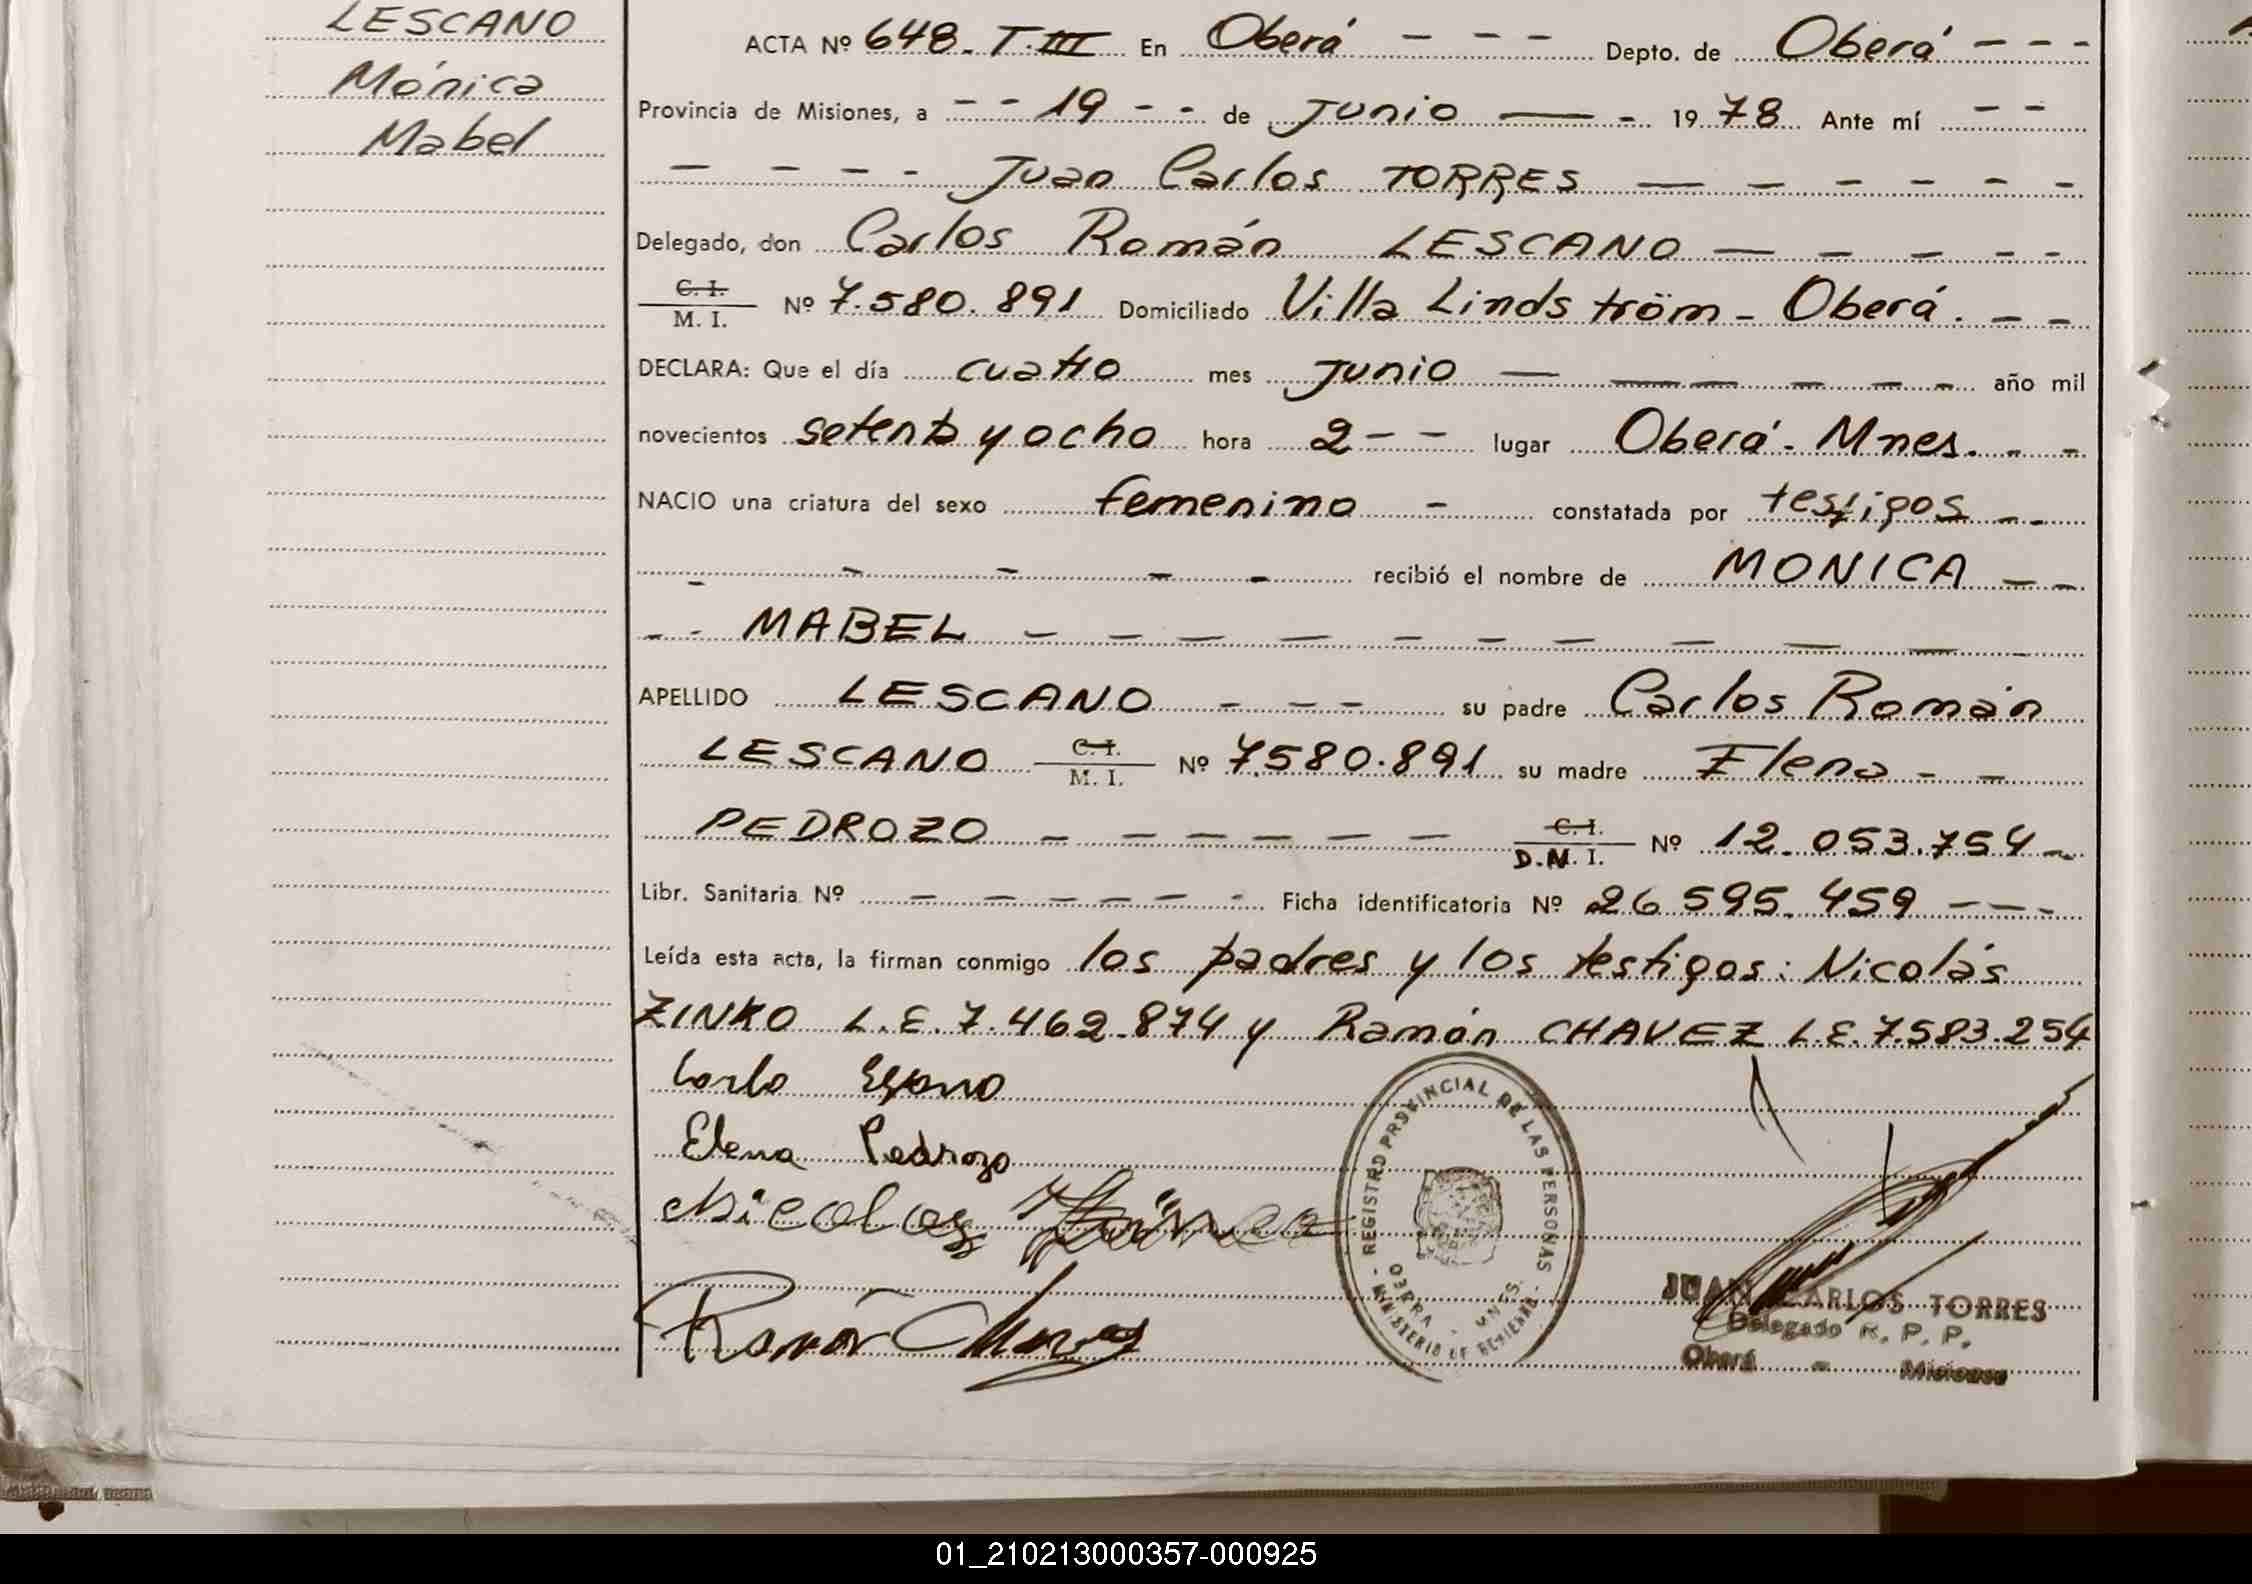 LESCANO
Mónica
Mabel
ACTA Nº 648. T. III En Oberá - - - Depto. de Oberá - - -
Provincia de Misiones, a - - 19 - - de Junio — - 1978 Ante mí - -
- - - - Juan Carlos TORRES — - - - - -
Delegado, don Carlos Román LESCANO — - - - -
C. I.
M. I. Nº 7.580.891 Domiciliado Villa Lindström - Oberá. - -
DECLARA: Que el día cuatro mes Junio — — — - - - año mil
novecientos setenta y ocho hora 2 - - lugar Oberá - Mnes. - -
NACIO una criatura del sexo femenino - constatada por testigos - -
- - - - - recibió el nombre de MONICA - -
- - MABEL - - - - - - - - - - -
APELLIDO LESCANO - - - su padre Carlos Román
LESCANO C. I.
M. I. Nº 7.580.891 su madre Elena - -
PEDROZO - - - - - - C. I.
D.M. I. Nº 12.053.754 -
Libr. Sanitaria Nº - - - - - - Ficha identificatoria Nº 26 595.459 - - -
Leída esta acta, la firman conmigo los padres y los testigos: Nicolás
ZINKO L.E. 7.462.874 y Ramón CHAVEZ L.E. 7.583.254
Elena Pedrozo
Nicolas
Ramón Chavez
REGISTRO PROVINCIAL DE LAS PERSONAS
MINISTERIO DE GOBIERNO
OBERA - MNES.
JUAN CARLOS TORRES
Delegado R. P. P.
Oberá - Misiones
01_210213000357-000925